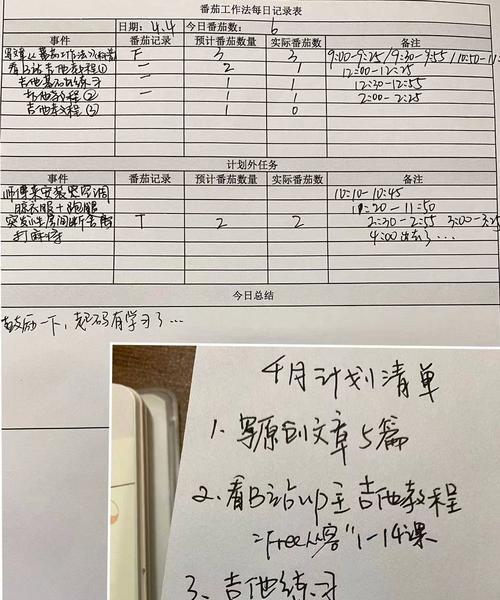 番茄工作法每日记录表
日期: 4.4 今日番茄数: 6
事件 番茄记录 预计番茄数量 实际番茄数 备注
写文章《番茄工作法 F 3 3 9:00-9:25/9:30-9:55/10:50-11:
看B站吉他教程① 一 2 1 12:00-12:25
吉他基础练习 一 1 1 12:30-12:55
吉他教程② 一 1 1 2:00-2:25
吉他教程③ 1 0
计划外任务
事件 番茄记录 预计番茄数量 实际番茄数 备注
师傅来安装空调 10:10-10:45
晾衣服+ 11:20-11:50
突发 房间断舍离 T 2 2 2:30-2:55 3:00-3:25
打麻将 4:00出去了...
今日总结
鼓励一下,起码有学习了...
4月计划清单
1、写原创文章5篇
2、看B站up主吉他教程
"Free 客"1-14课
3、吉他练习